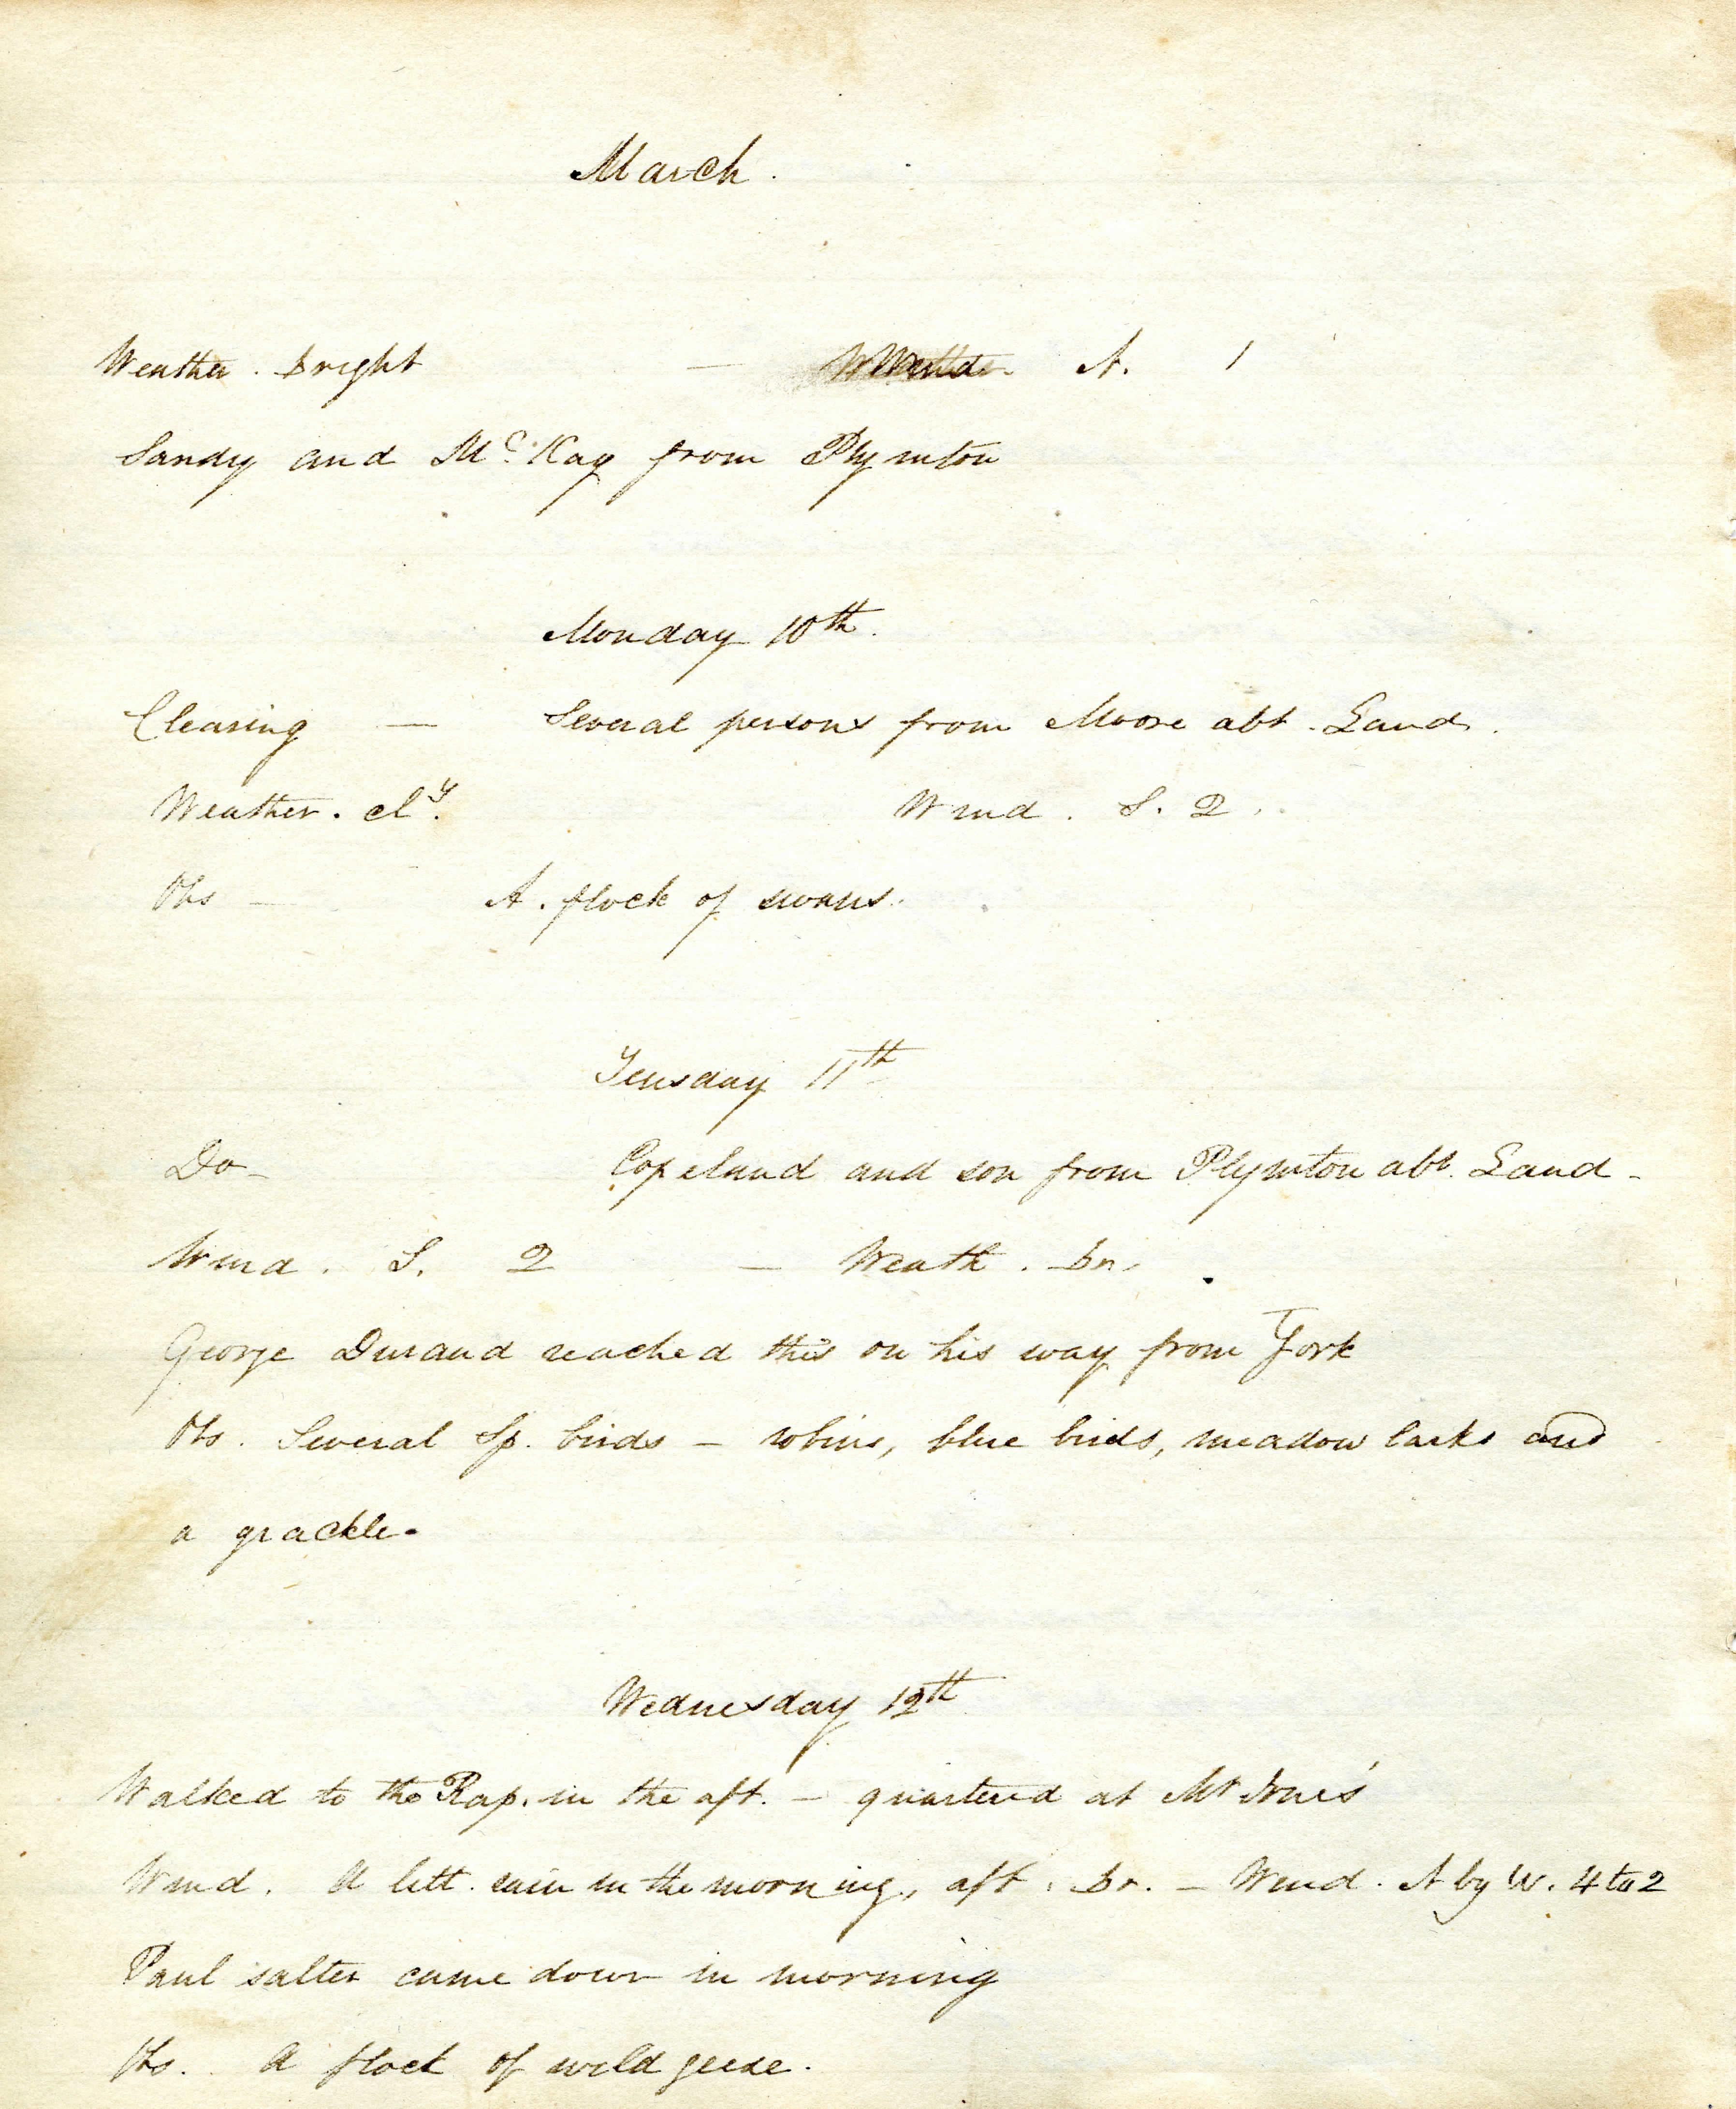 March.
Weather. bright — N. 1
Sandy and Mc. Kay from Plymton
Monday 10th.
Clearing — Several persons from Moore abt. Land.
Weather. cly. Wind. S. 2.
Obs — A. flock of swans.
Teusday 11th
Do- Copeland and son from Plymton abt. Land -
Wind. S. 2 — Weath. br.
George Durand reached this on his way from York
Obs. Several Sp. birds - robins, blue birds, meadow larks and
a grackle.
Wednesday 12th
Walked to the Rap. in the aft. - quartered at Mr
Wind. A litt. rain in the morning, aft. br. - Wind. N by W. 4 to 2
Paul salter came down in morning
Obs. A flock of wild geese.